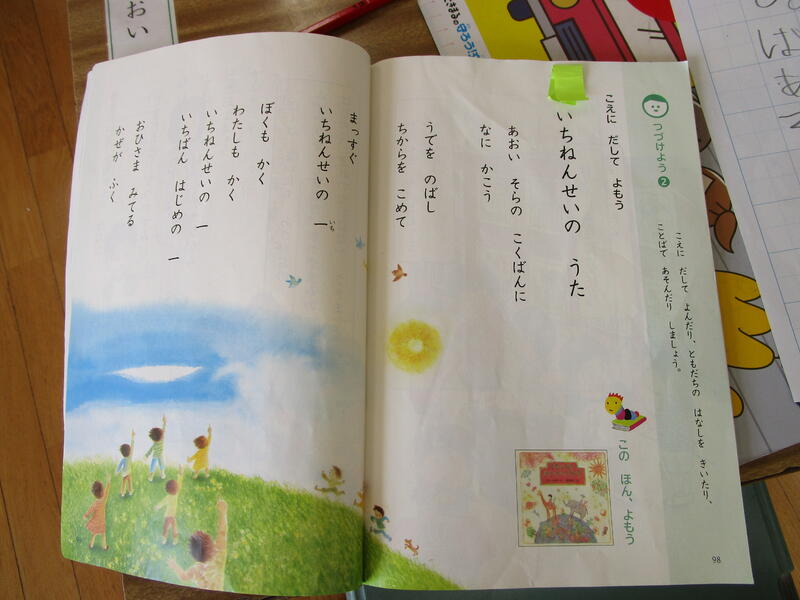 つづけよう ❷
こえに だして よんだり、ともだちの はなしを きいたり、
ことばで あそんだり しましょう。
この ほん、よもう
こえに だして よもう
いちねんせいの うた
あおい そらの こくばんに
なに かこう
うでを のばし
ちからを こめて
まっすぐ
いちねんせいの 一
いち
ぼくも かく
わたしも かく
いちねんせいの 一
いちばん はじめの 一
おひさま みてる
かぜが ふく
98
おい